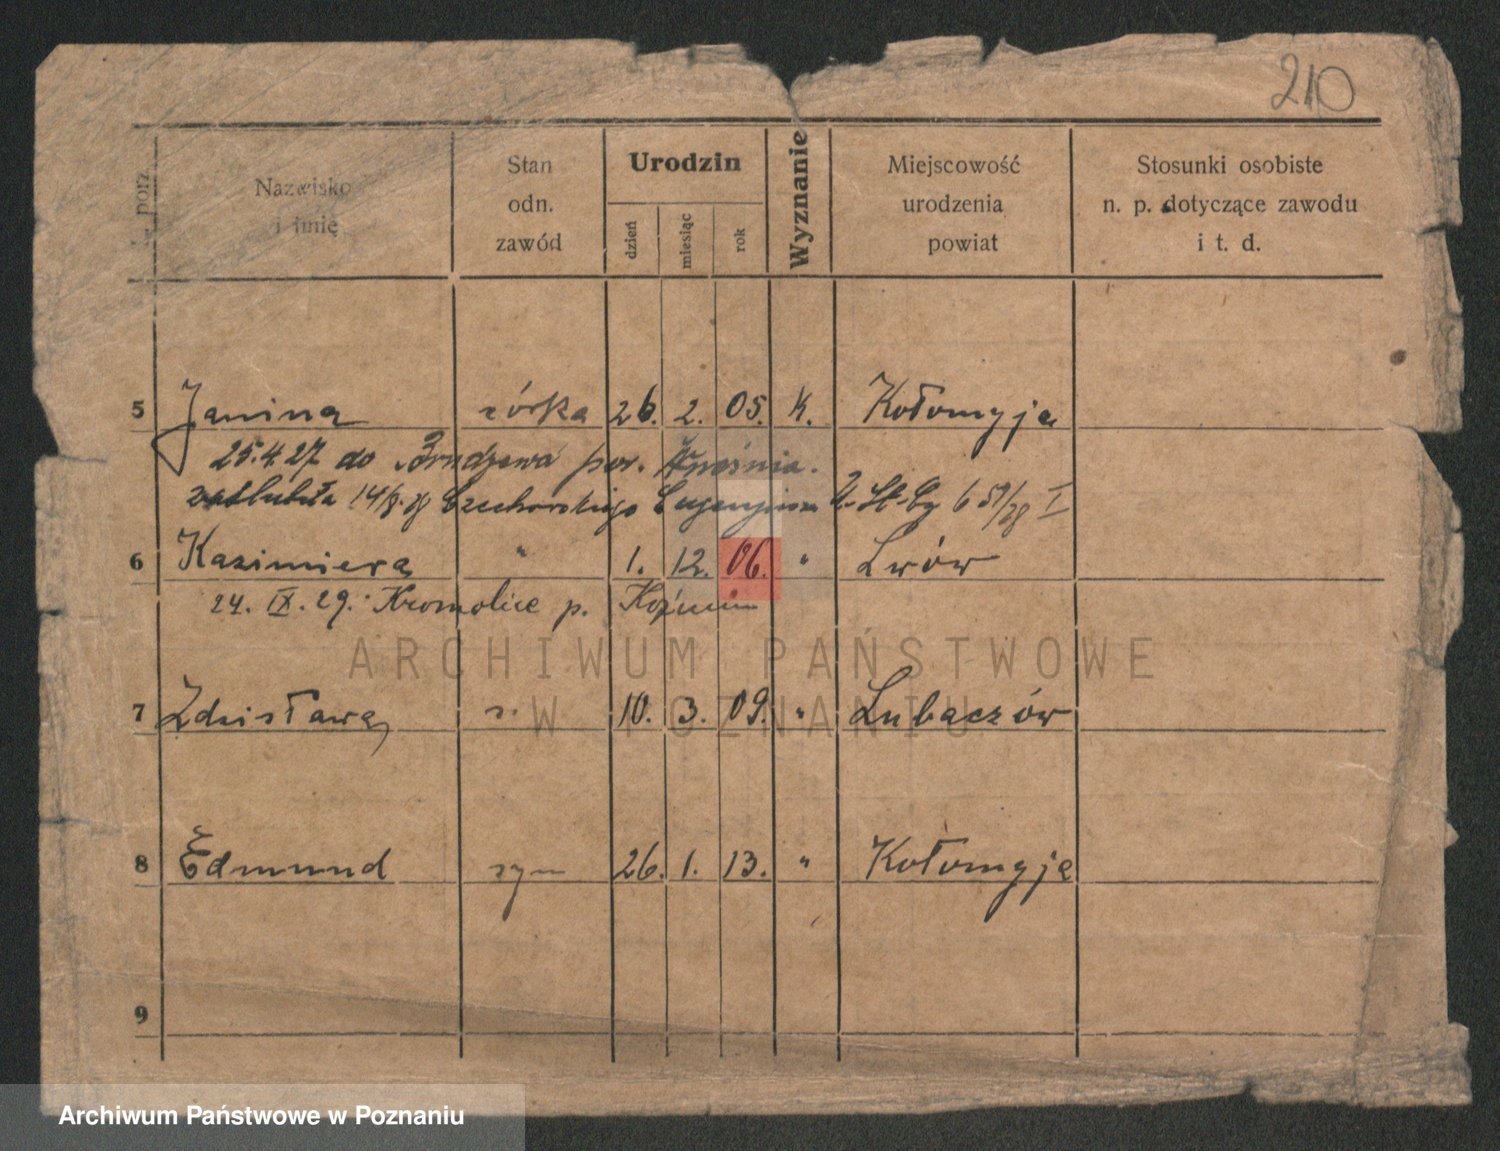 210
porz.
Nazwisko
i imię
Stan
odn.
zawód
Urodzin
dzień
miesiąc
rok
Wyznanie
Miejscowość
urodzenia
powiat
Stosunki osobiste
n. p. dotyczące zawodu
i t. d.
5 Janina córka 26. 2. 05. K. Kołomyja
25.4.27 do pow.
14/8.28 Czechowskiego Eugenjusza 651/28 I
6 Kazimiera " 1. 12. 06. " Lwów
24. IX. 29. Kromolice p. Koźmin
ARCHIWUM PAŃSTWOWE
W POZNANIU
7 Zdzisława 10. 3. 09. " Lubaczów
8 Edmund syn 26. 1. 13. " Kołomyja
9
Archiwum Państwowe w Poznaniu